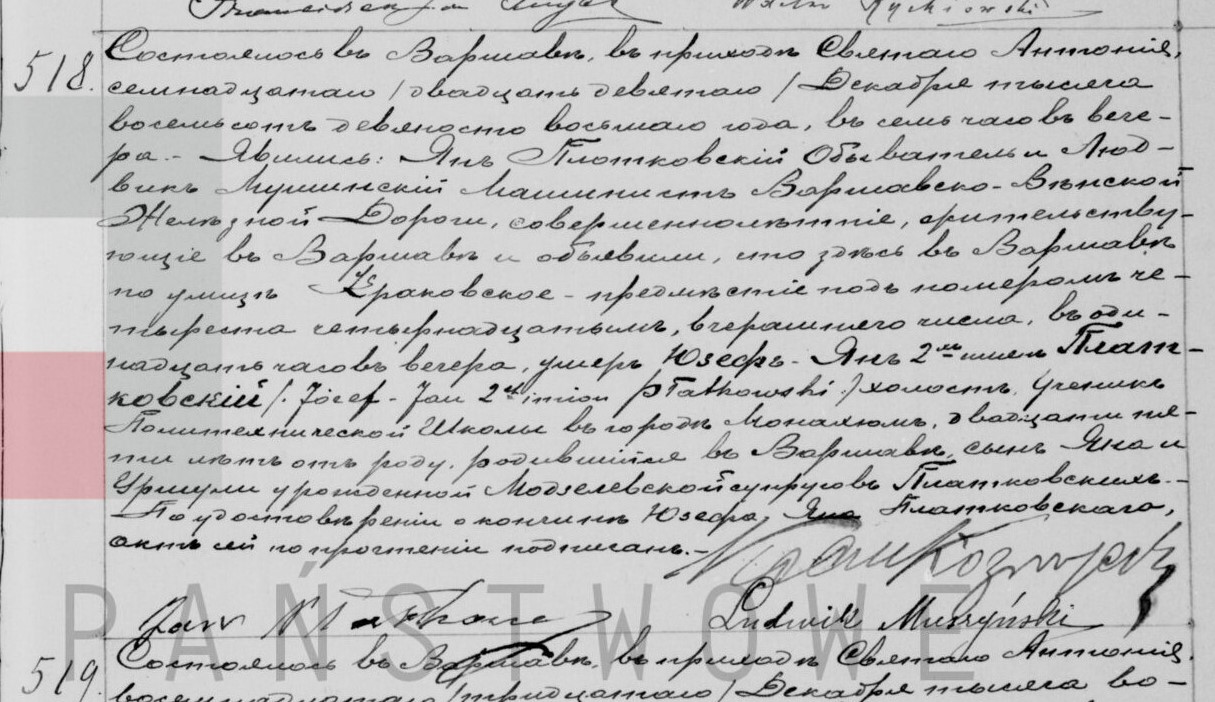 518.
Состоялось въ Варшавѣ, въ приходѣ Святаго Антонія,
семнадцатаго / двадцать девятаго / Декабря тысяча
восемьсотъ девяносто восьмаго года, въ семь часовъ вече-
ра. - Явились: Янъ Платковскій Обыватель и Люд-
викъ Мушинскій Машинистъ Варшавско-Вѣнской
Желѣзной Дороги, совершеннолѣтніе, жительству-
ющіе въ Варшавѣ и объявили, что здѣсь въ Варшавѣ
по улицѣ Краковское-предмѣстіе подъ номеромъ че-
тыреста четырнадцатымъ, вчерашняго числа, въ оди-
надцать часовъ вечера, умеръ Юзефъ-Янъ 2хъ именъ Плат-
ковскій /: Józef-Jan 2ch imion Płatkowski :/ холостъ, ученикъ
Политехнической Школы въ городѣ Монахіумъ, двадцати пя-
ти лѣтъ отъ роду, родившійся въ Варшавѣ, сынъ Яна и
Уршули урожденной Модзелевской супруговъ Платковскихъ.-
По удостовѣреніи о кончинѣ Юзефа Яна Платковскаго,
актъ сей по прочтеніи подписанъ.-
Jan Ludwik Muszyński
PAŃSTWOWE
519.
Состоялось въ Варшавѣ, въ приходѣ Святаго Антонія,
восемнадцатаго / тридцатаго / Декабря тысяча во-